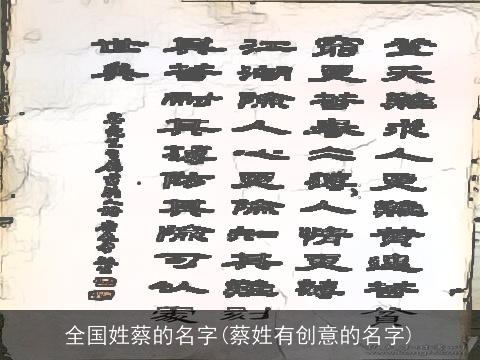 登天難求人更難黄連苦貧
窮更苦春冰薄人情更薄
江湖險人心更險知其難刻
其苦耐其薄防其險可以處
世矣
全国姓蔡的名字(蔡姓有创意的名字)